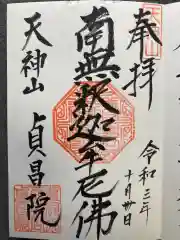 奉拝
令和三年
十月卅日
南無釈迦牟尼佛
天神山
貞昌院